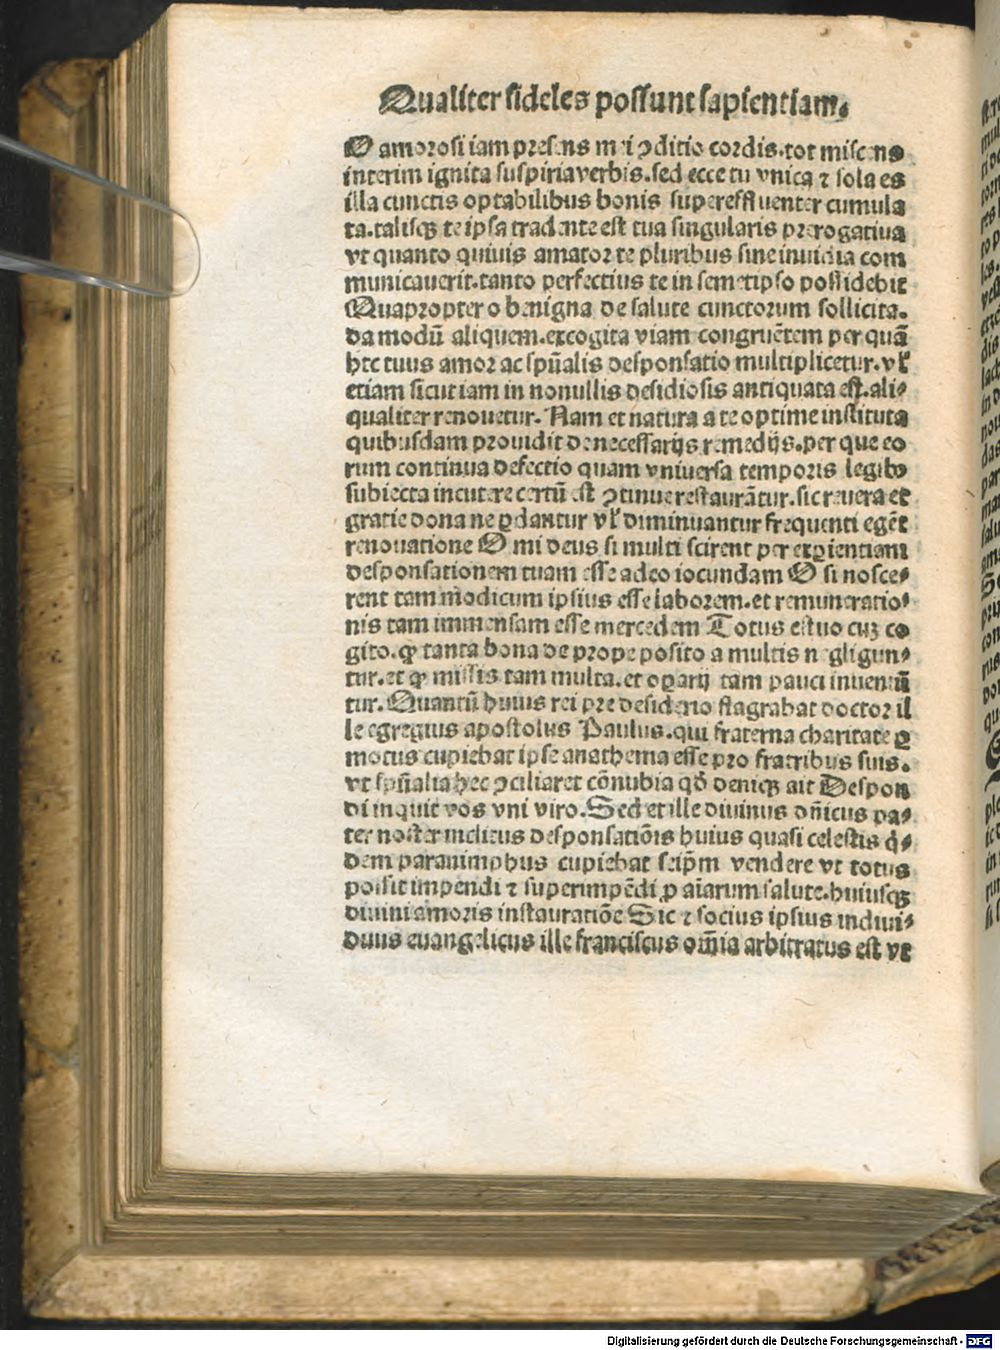 Qualiter fideles possunt sapientiam.
O amorosi iam presens mei ꝯditio cordis.tot miscens
interim ignita suspiria verbis.sed ecce tu vnica ⁊ sola es
illa cunctis optabilibus bonis supereffluenter cumula
ta.talisqꝫ te ipsa tradente est tua singularis prerogatiua
vt quanto quiuis amator te pluribus sine inuidia com
municauerit.tanto perfectius te in semetipso possidebit
Quapropter o benigna de salute cunctorum sollicita.
da modū aliquem.excogita viam congruētem per quā
hec tuus amor ac spūalis desponsatio multiplicetur.vl̓
etiam sicut iam in nonullis desidiosis antiquata est.ali⸗
qualiter renouetur. Nam et natura a te optime instituta
quibusdam prouidit de necessarijs remedijs.per que eo
rum continua defectio quam vniuersa temporis legibꝰ
subiecta incutere certū est ꝯtinue restaurātur.sic reuera et
gratie dona ne ꝑdantur vl̓ diminuantur frequenti egēt
renouatione O mi deus si multi scirent per exꝑientiam
desponsationem tuam esse adeo iocundam O si nosce⸗
rent tam modicum ipsius esse laborem.et remuneratio⸗
nis tam immensam esse mercedem Totus estuo cuꝫ co
gito.ꝙ tanta bona de prope posito a multis negligun⸗
tur.et ꝙ messis tam multa.et oꝑarij tam pauci inueniū
tur. Quantū huius rei pre desiderio flagrabat doctor il
le egregius apostolus Paulus.qui fraterna charitate ꝑ
motus cupiebat ipse anathema esse pro fratribus suis.
vt spūalia hec ꝯciliaret cōnubia qd̄ deniqꝫ ait Despon
di inquit vos vni viro. Sed et ille diuinus dn̄icus pa⸗
ter noster inclitus desponsatiōis huius quasi celestis q̇⸗
dem paranimphus cupiebat seip̄m vendere vt totus
possit impendi ⁊ superimpēdi ꝓ aīarum salute.huiusqꝫ
diuini amoris instauratiōe Sic ⁊ socius ipsius indiui⸗
duus euangelicus ille franciscus om̄ia arbitratus est vt
Digitalisierung gefördert durch die Deutsche Forschungsgemeinschaft - DFG